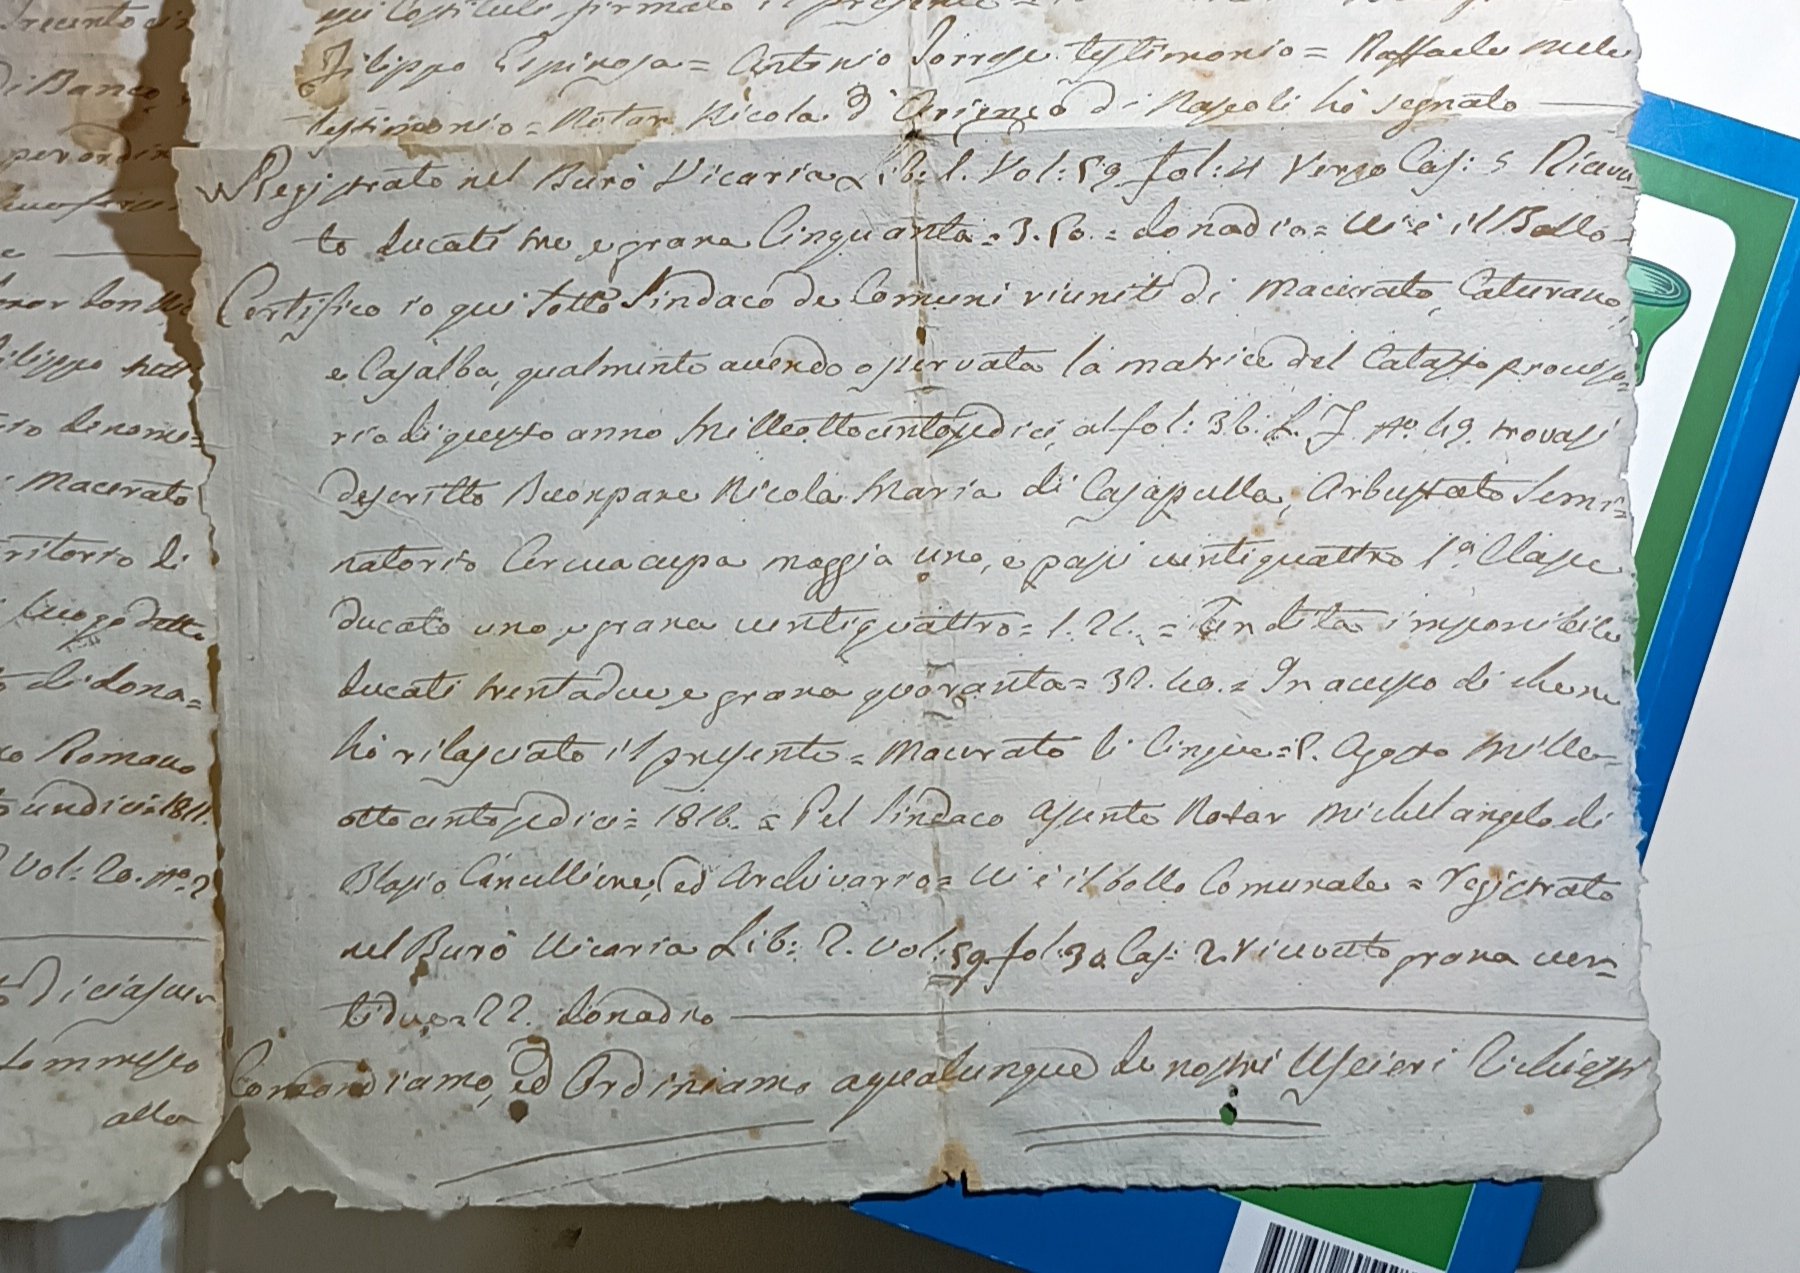 Trecento
qui Costituti, firmato il presente =
di Banco
Filippo Espinosa = Antonio Torrese testimonio = Raffaele Mele
per ordin
testimonio = Notar Nicola d'Arienzo di Napoli hò segnato
Registrato nel Burò Vicaria Lib: 1. Vol: 59. fol: 4 Verso Cas: 5 Ricevu=
to ducati tre e grana Cinquanta = 3.50. = Donadio = Vi è il Bollo =
Certifico io qui sotto Sindaco de Comuni riuniti di Macerata, Caturano,
e Casalba, qualmente avendo osservata la matrice del Catasto provviso=
rio di questo anno Milleottocentosedici, al fol: 36. L. J. No. 49. trovasi
descritto Buonpane Nicola Maria di Casapulla, Arbustato Semi=
natorio Cercuacupa moggia uno, e passi ventiquattro 1a. Classe
ducato uno, e grana ventiquattro = 1.24. = Rendita imponibile
ducati trentadue, e grana quaranta = 32.40. = In accesso di che ne
hò rilasciato il presente = Macerata li Cinque = 5. Agosto Mille=
ottocentosedici = 1816. = Pel Sindaco assente Notar Michelangelo di
Blasio Cancelliere, ed Archivario = Vi è il bollo Comunale = Registrato
nel Burò Vicaria Lib: 2. Vol: 59. fol: 30. Cas: 2. ricevuto grana ven=
tidue = 22. Donadio
Comandiamo, ed Ordiniamo a qualunque de nostri Uscieri Richiesti
Filippo
di nome=
Macerata
ritorio di
luogo detto
di dona=
Romano
undici = 1811.
Vol: 20. No. 2
Diciasset
Commesso
alla